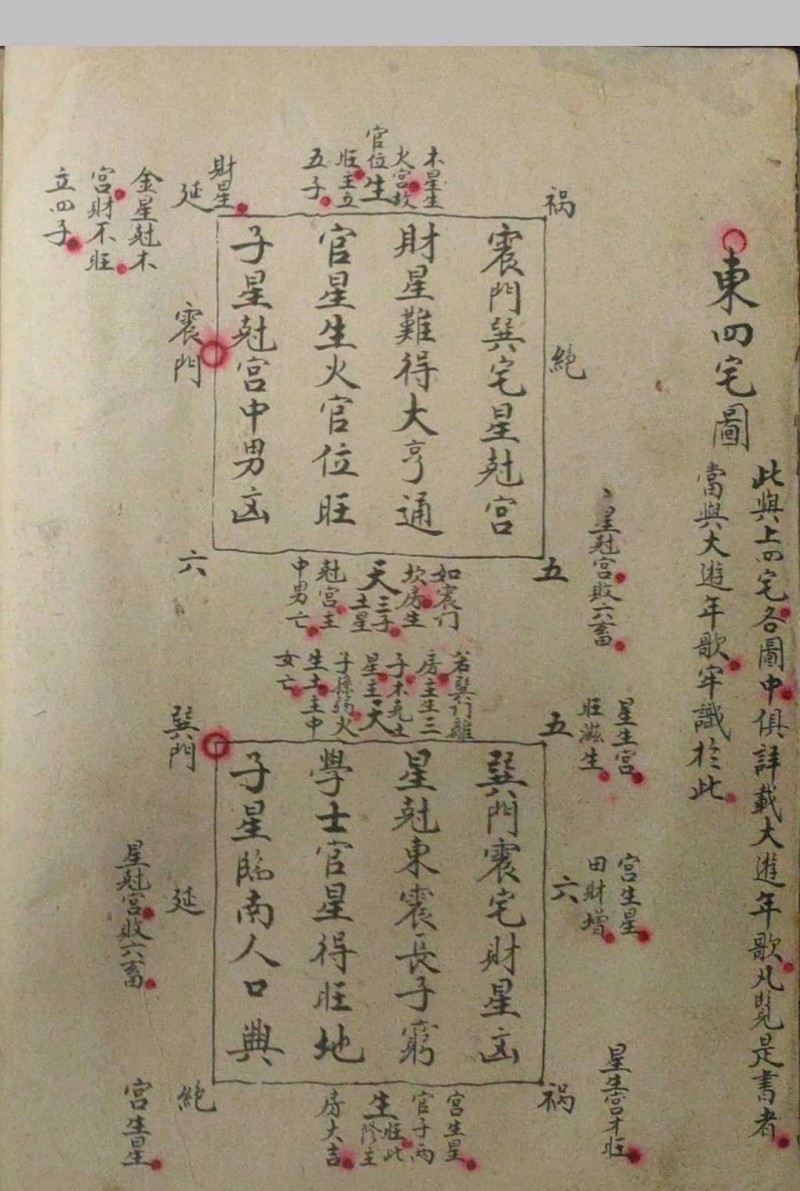 東四宅圖
此與上四宅各圖中俱詳載大遊年歌凡覽是書者
當與大遊年歌牢識於此
祸
絶
五
木星生
火宮坎
官位生
旺主立
五子
震門巽宅星尅宮
財星難得大亨通
官星生火官位旺
子星尅宮中男凶
財星
延
震門
六
金星尅木
宮財不旺
立四子
如震门
坎房生
天三子
土星
尅宮主
中男亡
星尅宮敗六畜
星生宮
旺滋生
宮生星
田財增
星生宮才旺
五
六
祸
若巽门離
房主生三
子木尅土
星主天
火
生土主中
女亡
巽門震宅財星凶
星尅東震長子窮
學士官星得旺地
子星臨南人口興
巽門
延
絶
星尅宮敗六畜
宮生星
宮生星
官子両
生旺此
房大吉